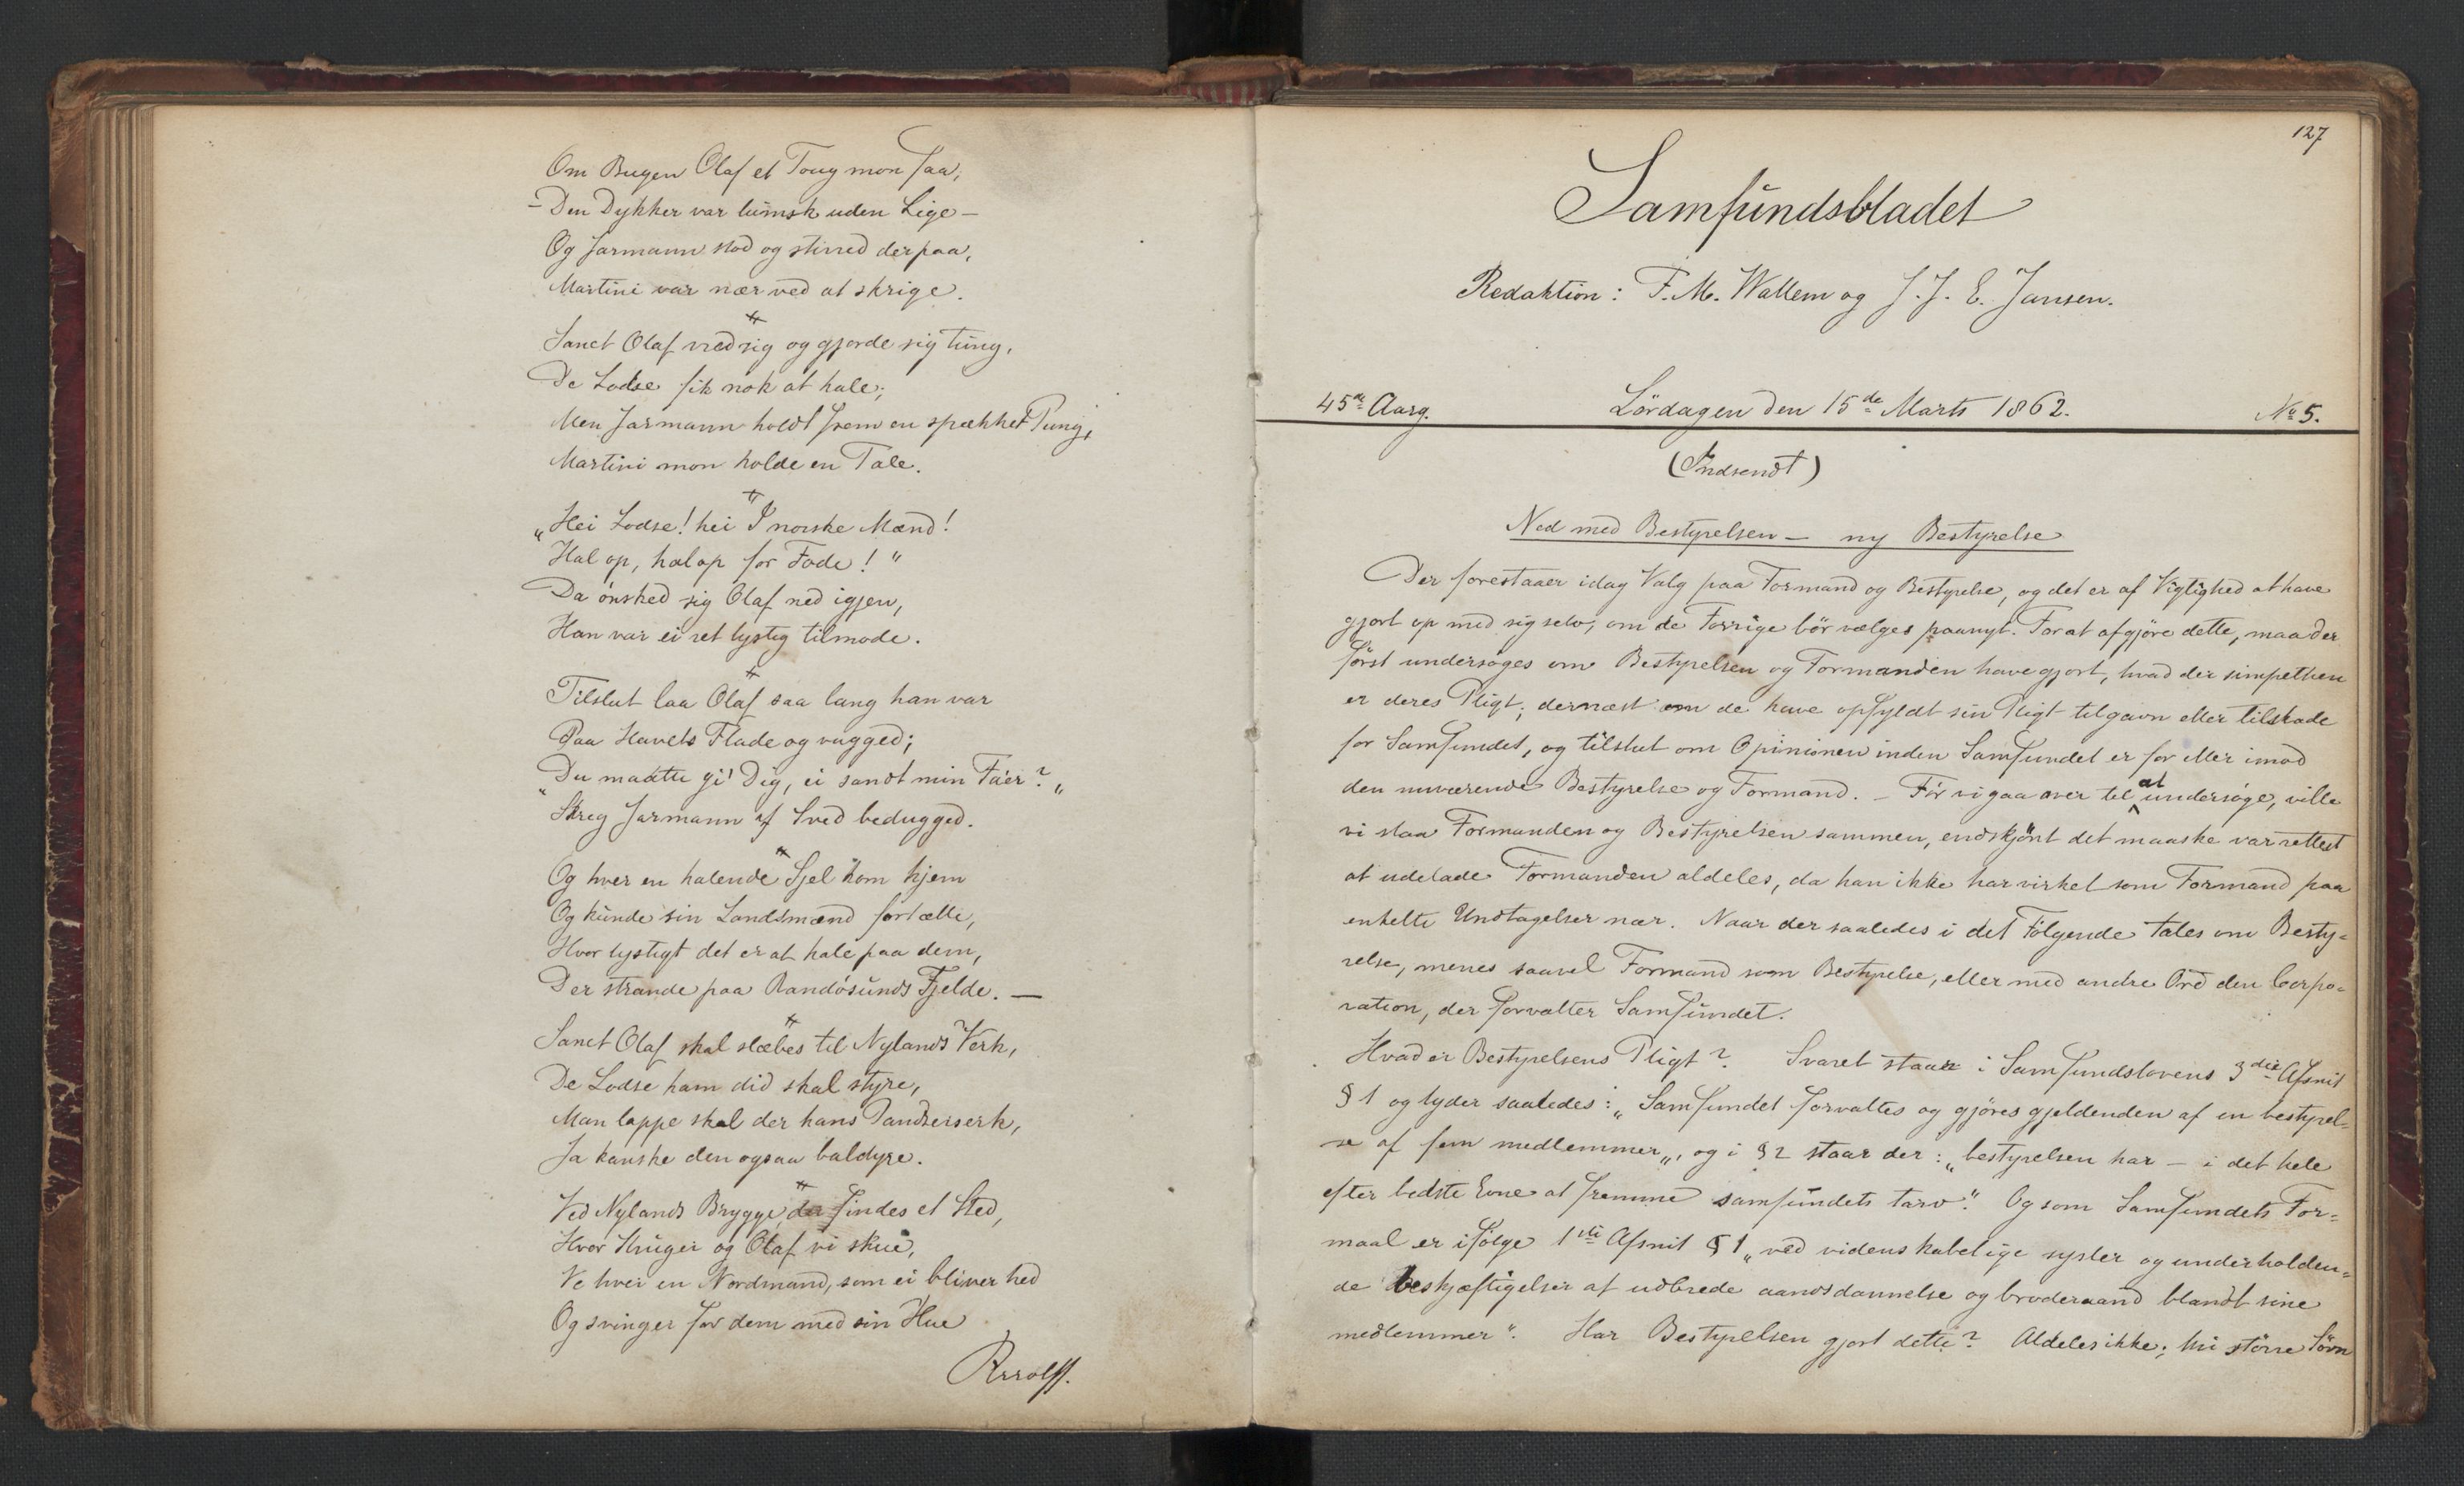 Om Bugen Olaf et Toug mon faa,
– Den Dykker var lumsk uden Lige –
Og Jarmann stod og stirred derpaa,
Martini var nær ved at skrige.
Sanct Olaf vred sig og gjorde sig tung,
De Lodse fik nok at hale;
Men Jarmann holdt frem en spækket Pung,
Martini mon holde en Tale.
„Hei Lodse! hei I norske Mænd!
Hal op, hal op for Fode!"
Da ønsked sig Olaf ned igjen,
Han var ei ret lystig tilmode.
Tilslut laa Olaf saa lang han var
Paa Havets Flade og vugged;
„Du maatte gi' Dig, ei sandt min Fa'er?„
Skreg Jarmann af Sved bedugged.
Og hver en halende Sjel kom hjem
Og kunde sin Landsmænd fortælle,
Hvor lystigt det er at hale paa dem,
Der strande paa Randösunds Fjelde. —
Sanct Olaf skal slæbes til Nylands Verk,
De Lodse ham did skal styre,
Man lappe skal der hans Pandserserk,
Ja kanske den ogsaa baldyre.
Ved Nylands Brygge der findes et Sted,
Hvor Krüger og Olaf vi skue,
Ve hver en Nordmand, som ei bliver hed
Og svinger for dem med sin Hue
Rrrolff.
127
Samfundsbladet
Redaktion: F. M. Wallem og J. J. E. Jansen.
45de Aarg.
Lördagen den 15de Marts 1862.
No 5.
(Indsendt)
Ned med Bestyrelsen – ny Bestyrelse
Der forestaaer idag Valg paa Formand og Bestyrelse, og det er af Vigtighed at have
gjort op med sig selv, om de Forrige bör vælges paanyt. For at afgjöre dette, maa der
först undersöges om Bestyrelsen og Formanden have gjort, hvad der simpelthen
er deres Pligt, dernæst om de have opfyldt sin Pligt tilgavn eller tilskade
for Samfundet, og tilslut om Opinionen inden Samfundet er for eller imod
den nuværende Bestyrelse og Formand. – För vi gaa over til at undersöge, ville
vi slaa Formanden og Bestyrelsen sammen, endskjönt det maaske var rettest
at udelade Formanden aldeles, da han ikke har virket som Formand paa
enkelte Undtagelser nær. Naar der saaledes i det Fölgende tales om Besty=
relse, menes saavel Formand som Bestyrelse, eller med andre Ord den Corpo=
ration, der forvalter Samfundet.
Hvad er Bestyrelsens Pligt? Svaret staar i Samfundslovens 3die Afsnit
§ 1 og lyder saaledes: „Samfundet forvaltes og gjöres gjeldenden af en bestyrel=
se af fem medlemmer„, og i § 2 staar der: „bestyrelsen har – i det hele
efter bedste Evne at fremme samfundets tarv". Og som Samfundets For=
maal er ifölge 1ste Afsnit § 1 „ved videnskabelige sysler og underholden=
de beskjæftigelser at udbrede aandsdannelse og broderaand blandt sine
medlemmer". Har Bestyrelsen gjort dette? Aldeles ikke; thi större Sövn